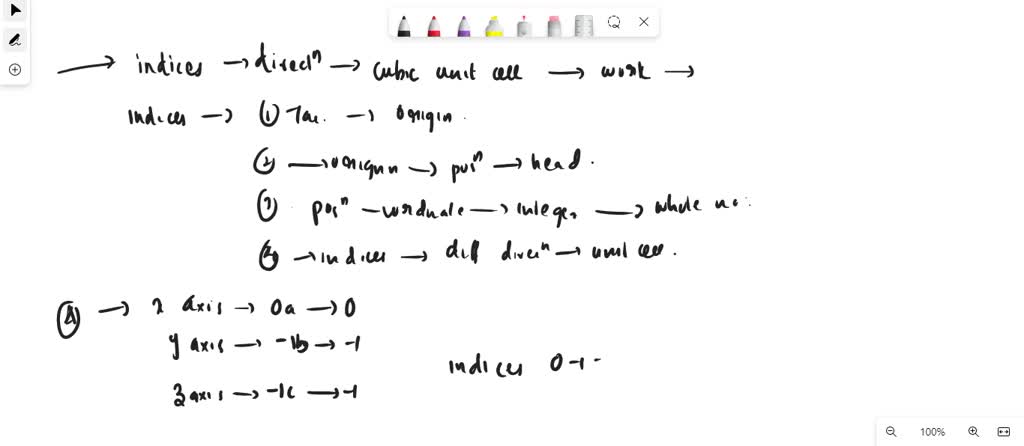 → indices → direcⁿ → cubic unit cell → work →
indices → ① Tai. → origin.
② → origin → posⁿ → head.
③ posⁿ - cordinate → integer → whole no.
→ indices → diff direcⁿ → unit cell.
Ⓐ → x axis → 0a → 0
y axis → -1b → -1
indices 0 -1 -
z axis → -1c → -1
100%